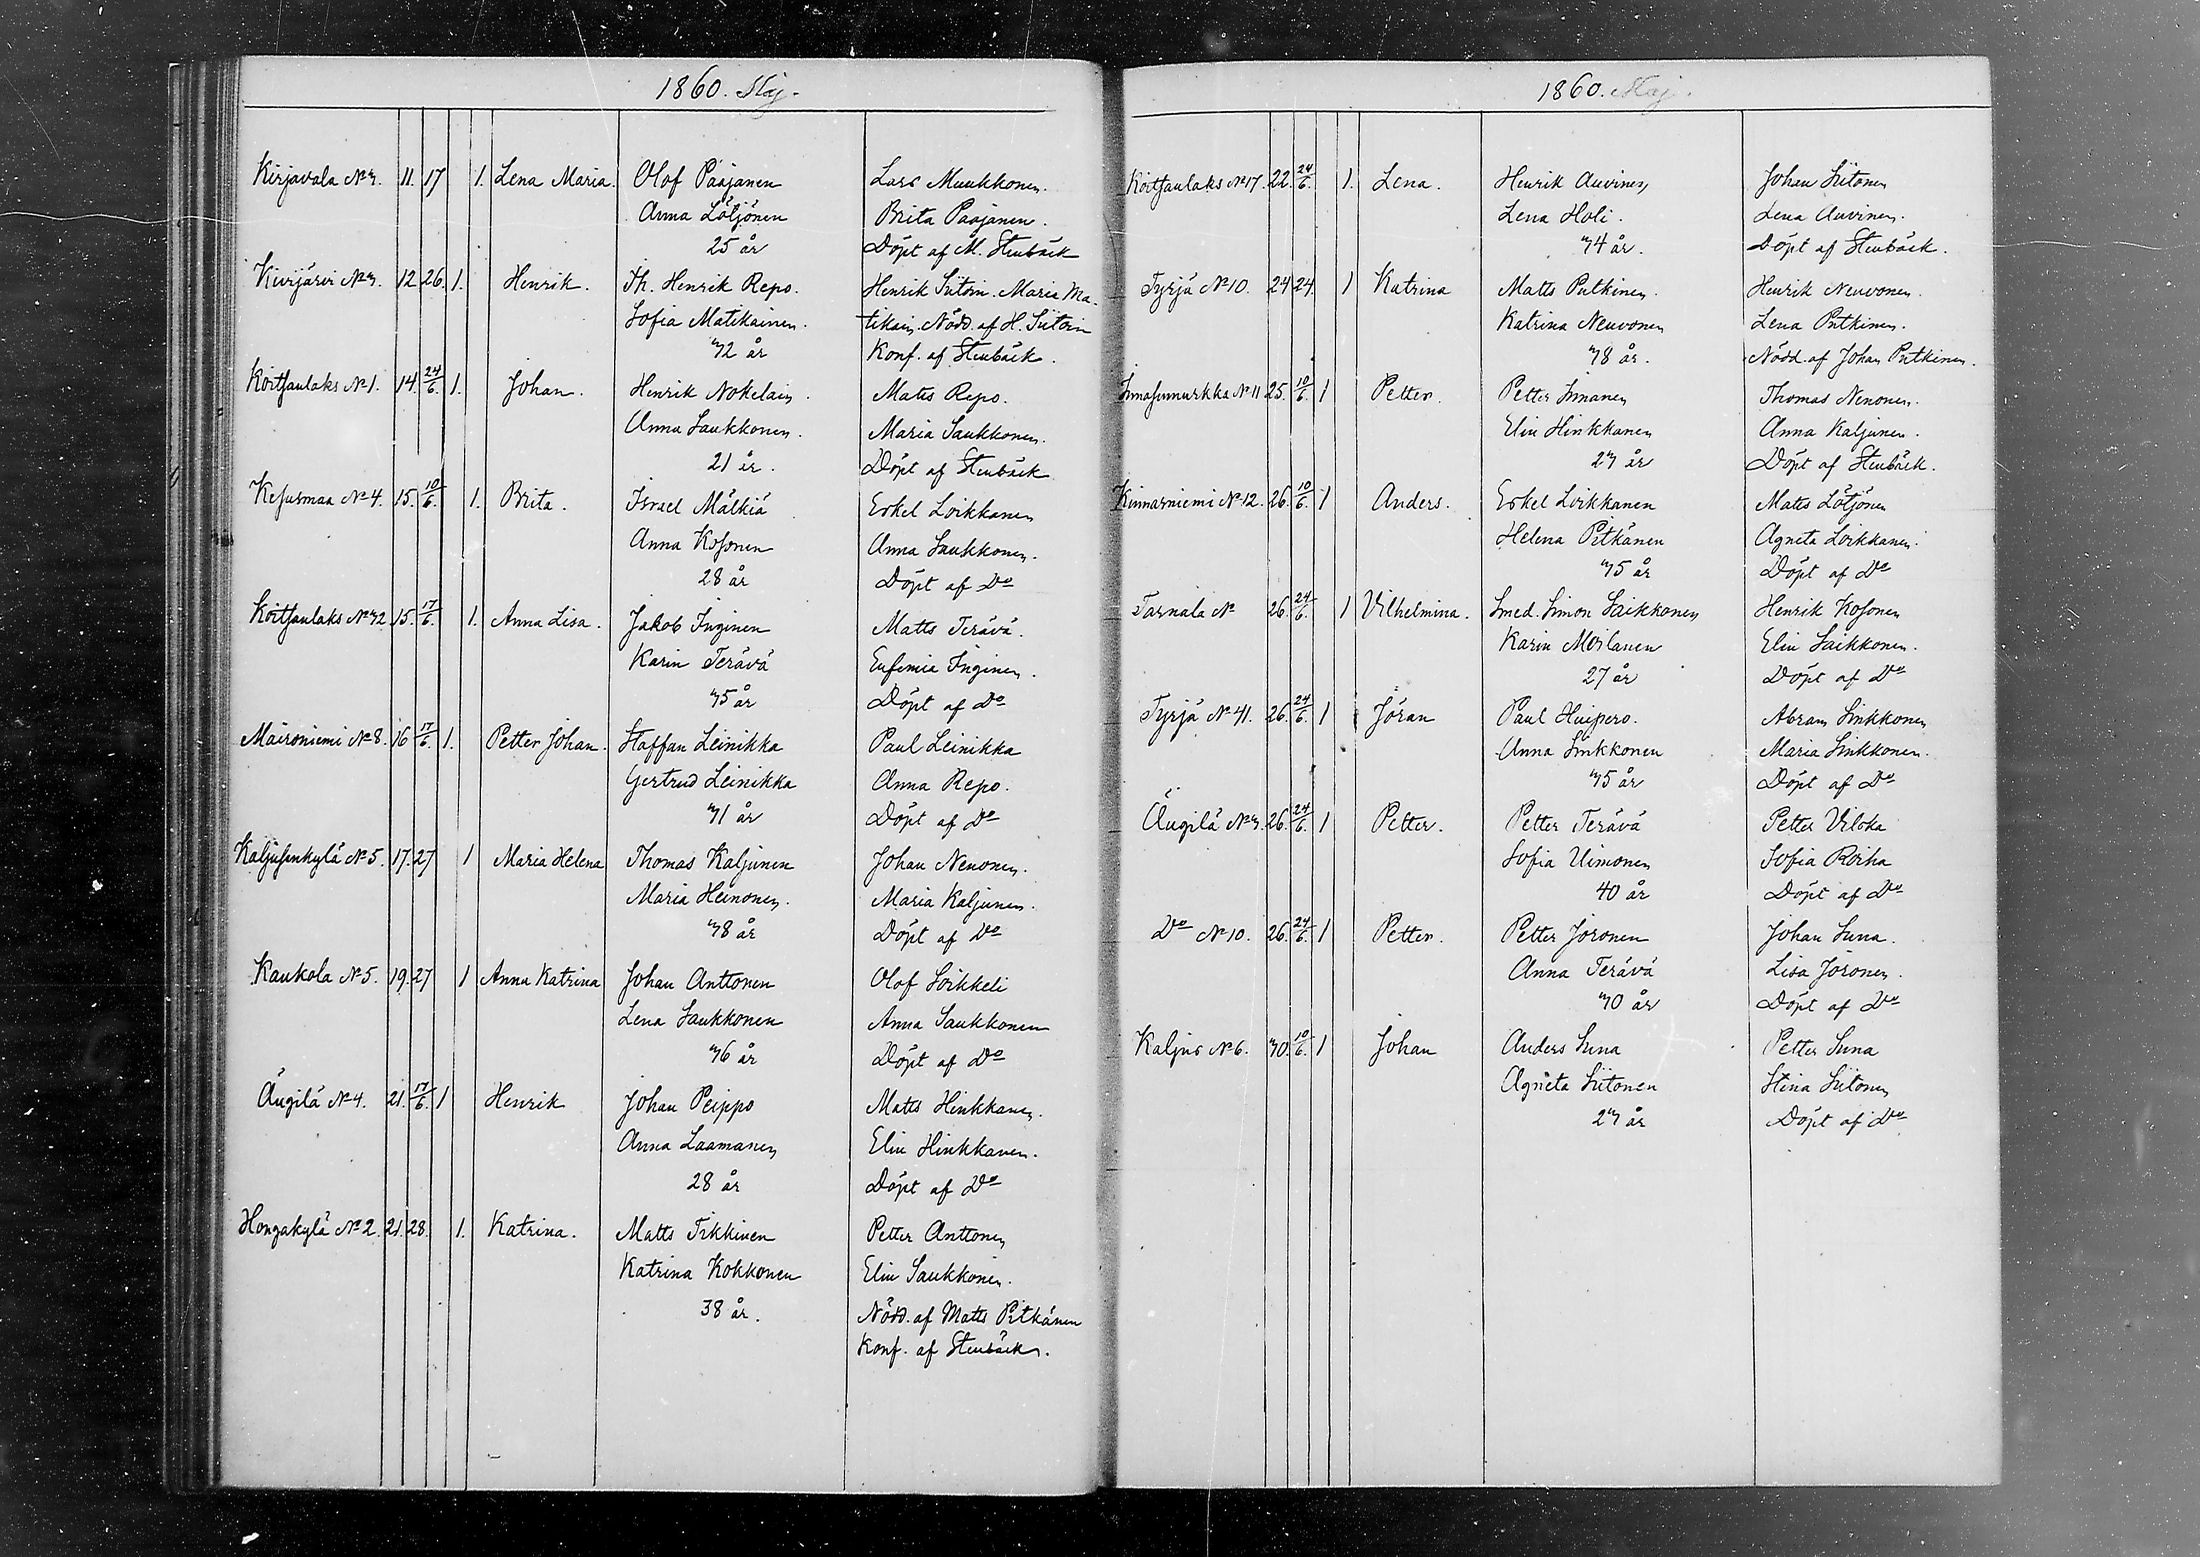 1860. Maj.
Kirjavala No 3. 11. 17 1. Lena Maria. Olof Paajanen Lars Muukkonen.
Anna Lötjönen Brita Paajanen.
25 år Döpt af M. Stenbäck
Kivijärvi No 3. 12 26. 1. Henrik. Th. Henrik Repo. Henrik Siitoin. Maria Ma-
Sofia Matikainen. tikain. Nödd. af H. Siitoin
32 år Konf. af Stenbäck.
Koitsanlaks No 1. 14. 24/6. 1. Johan. Henrik Nokelain. Matts Repo.
Anna Saukkonen. Maria Saukkonen.
21 år. Döpt af Stenbäck
Kesusmaa No 4. 15. 10/6. 1. Brita. Israel Mälkiä Erkel Loikkanen
Anna Kosonen Anna Saukkonen.
28 år Döpt af Do
Koitsanlaks No 32 15. 17/6. 1. Anna Lisa. Jakob Inginen Matts Terävä.
Karin Terävä Eufemia Inginen.
35 år Döpt af Do
Mäironiemi No 8. 16 17/6. 1. Petter Johan. Staffan Leinikka Paul Leinikka
Gertrud Leinikka Anna Repo.
31 år Döpt af Do
Kaljusenkylä No 5. 17. 27 1 Maria Helena Thomas Kaljunen Johan Nenonen.
Maria Heinonen. Maria Kaljunen.
38 år Döpt af Do
Kaukola No 5. 19. 27 1 Anna Katrina Johan Anttonen Olof Soikkeli
Lena Saukkonen Anna Saukkonen
36 år Döpt af Do
Ängilä No 4. 21. 17/6. 1 Henrik Johan Peippo Matts Hinkkanen.
Anna Laamanen Elin Hinkkanen.
28 år Döpt af Do
Hongakylä No 2. 21. 28. 1. Katrina. Matts Tikkinen Petter Anttonen
Katrina Kokkonen Elin Saukkonen.
38 år. Nödd. af Matts Pitkänen
Konf. af Stenbäck.
1860. Maj.
Koitsanlaks No 17. 22. 24/6. 1. Lena. Henrik Auvinen Johan Siitonen
Lena Holi. Lena Auvinen.
34 år. Döpt af Stenbäck.
Tyrjä No 10. 24 24. 1 Katrina Matts Putkinen. Henrik Neuvonen.
Katrina Neuvonen Lena Putkinen.
38 år. Nödd. af Johan Putkinen.
No 11 25. 10/6. 1 Petter. Petter Imanen Thomas Nenonen.
Elin Hinkkanen Anna Kaljunen.
23 år Döpt af Stenbäck.
Kinnarniemi No 12. 26. 10/6. 1 Anders. Erkel Loikkanen Matts Lötjönen
Helena Pitkänen Agneta Loikkanen.
35 år Döpt af Do
Tarnala No 26. 24/6. 1 Vilhelmina. Smed. Simon Saikkonen Henrik Kosonen
Karin Moilanen Elin Saikkonen.
27 år Döpt af Do
Tyrjä No 41. 26. 24/6. 1 Jöran Paul Huipero. Abram Sinkkonen
Anna Sinkkonen Maria Sinkkonen.
35 år Döpt af Do
Ängilä No 3. 26. 24/6. 1 Petter. Petter Terävä Petter Vilska
Sofia Uimonen Sofia Roiha
40 år Döpt af Do
Do No 10. 26. 24/6. 1 Petter. Petter Joronen Johan Suna.
Anna Terävä Lisa Joronen.
30 år Döpt af Do
Kaljus No 6. 30. 10/6. 1 Johan Anders Suna Petter Suna
Agneta Siitonen Stina Siitonen
23 år Döpt af Do